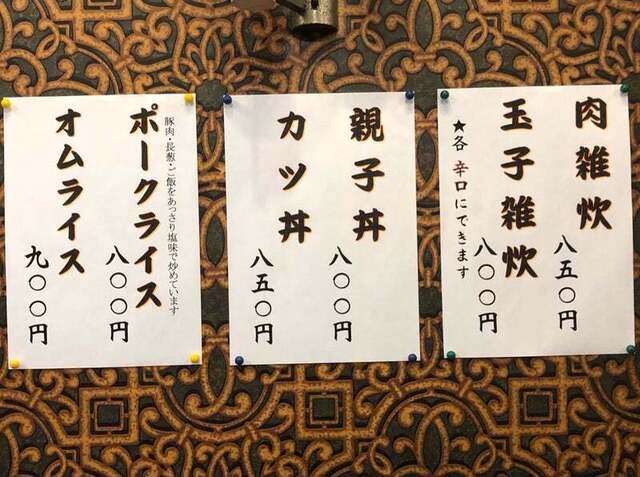 肉雑炊
八五〇円
玉子雑炊
八〇〇円
★各 辛口にできます
親子丼
八〇〇円
カツ丼
八五〇円
豚肉・長葱・ご飯をあっさり塩味で炒めています
ポークライス
八〇〇円
オムライス
九〇〇円